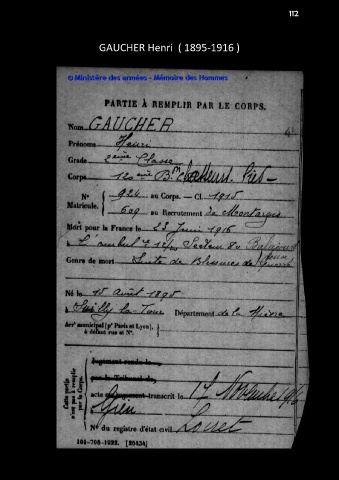 112
GAUCHER Henri ( 1895-1916 )
© Ministère des armées - Mémoire des Hommes
PARTIE À REMPLIR PAR LE CORPS.
Nom GAUCHER
Prénoms Henri
Grade 2ème Classe
Corps 120ème Bon Chasseurs. Pied
N° Matricule. 924 au Corps. — Cl. 1915
609 au Recrutement de Montargis
Mort pour la France le 23 Juin 1916
à L'ambul Secteur
Genre de mort Suite de Blessures de Guerre
Né le 15 Août 1895
à Suilly la Tour Département de la Nièvre
Arrt municipal (pr Paris et Lyon), à défaut rue et N°.
Cette partie n'est pas à remplir par le Corps.
Jugement rendu le
par le Tribunal de
acte ou jugement transcrit le 17 Novembre 1916
à Gien Loiret
N° du registre d'état civil
101-708-1922. [26434]